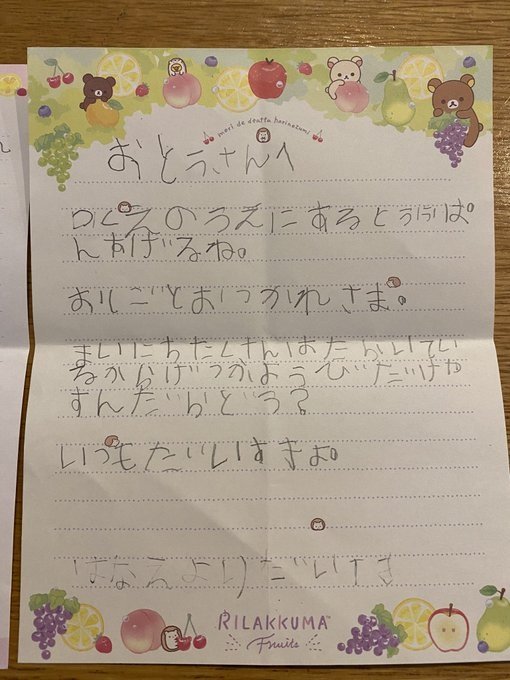 mori de deatta harinezumi
おとうさんへ
つくえのうえにある
あげるね。
おしごとおつかれさま。
まいにちたくさんはたらいてい
るからげつかようびだけや
すんだらどう?
いつもだいすきよ。
はなえよりだいすき
RILAKKUMA
Fruits